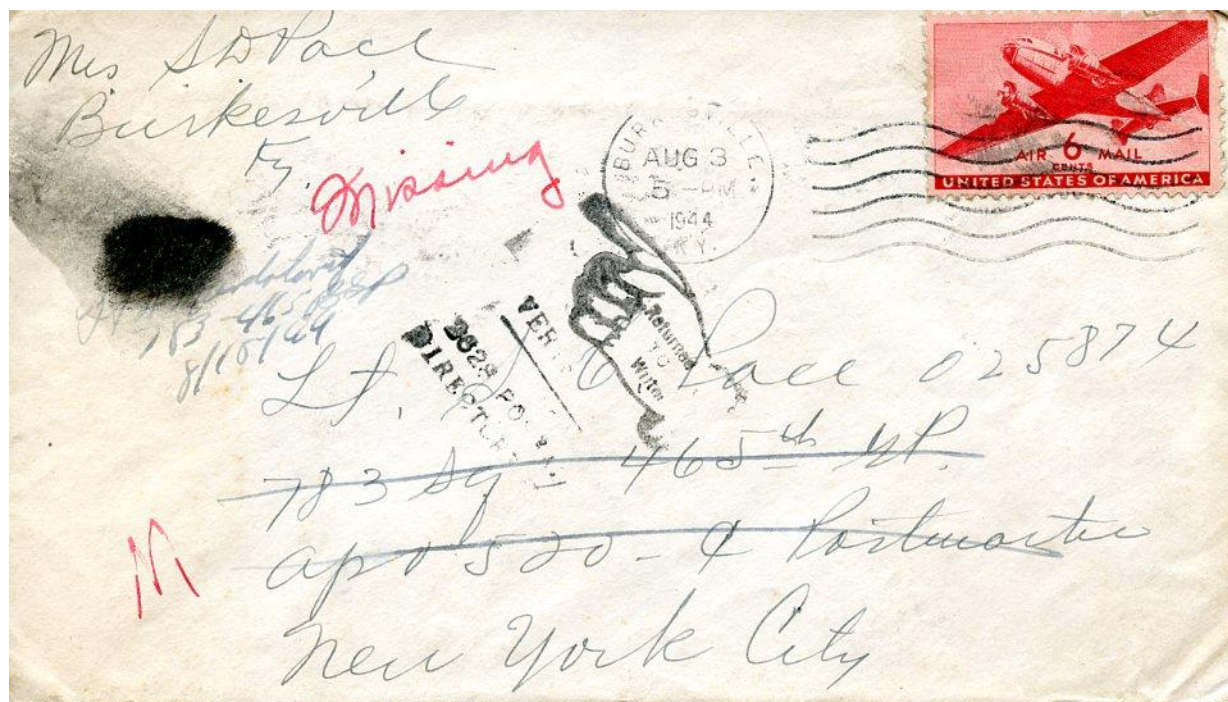 Mrs S D Pace
Burkesville
Ky.
Missing
BURKESVILLE
AUG 3
5 - PM
1944
KY.
AIR 6 MAIL
CENTS
UNITED STATES OF AMERICA
783 - 465
8/18/44
Returned
TO
Writer
DIRECTORY
Lt. S C Pace 025874
783 Sq - 465th GP.
APO 520 - % Postmaster
New York City
M